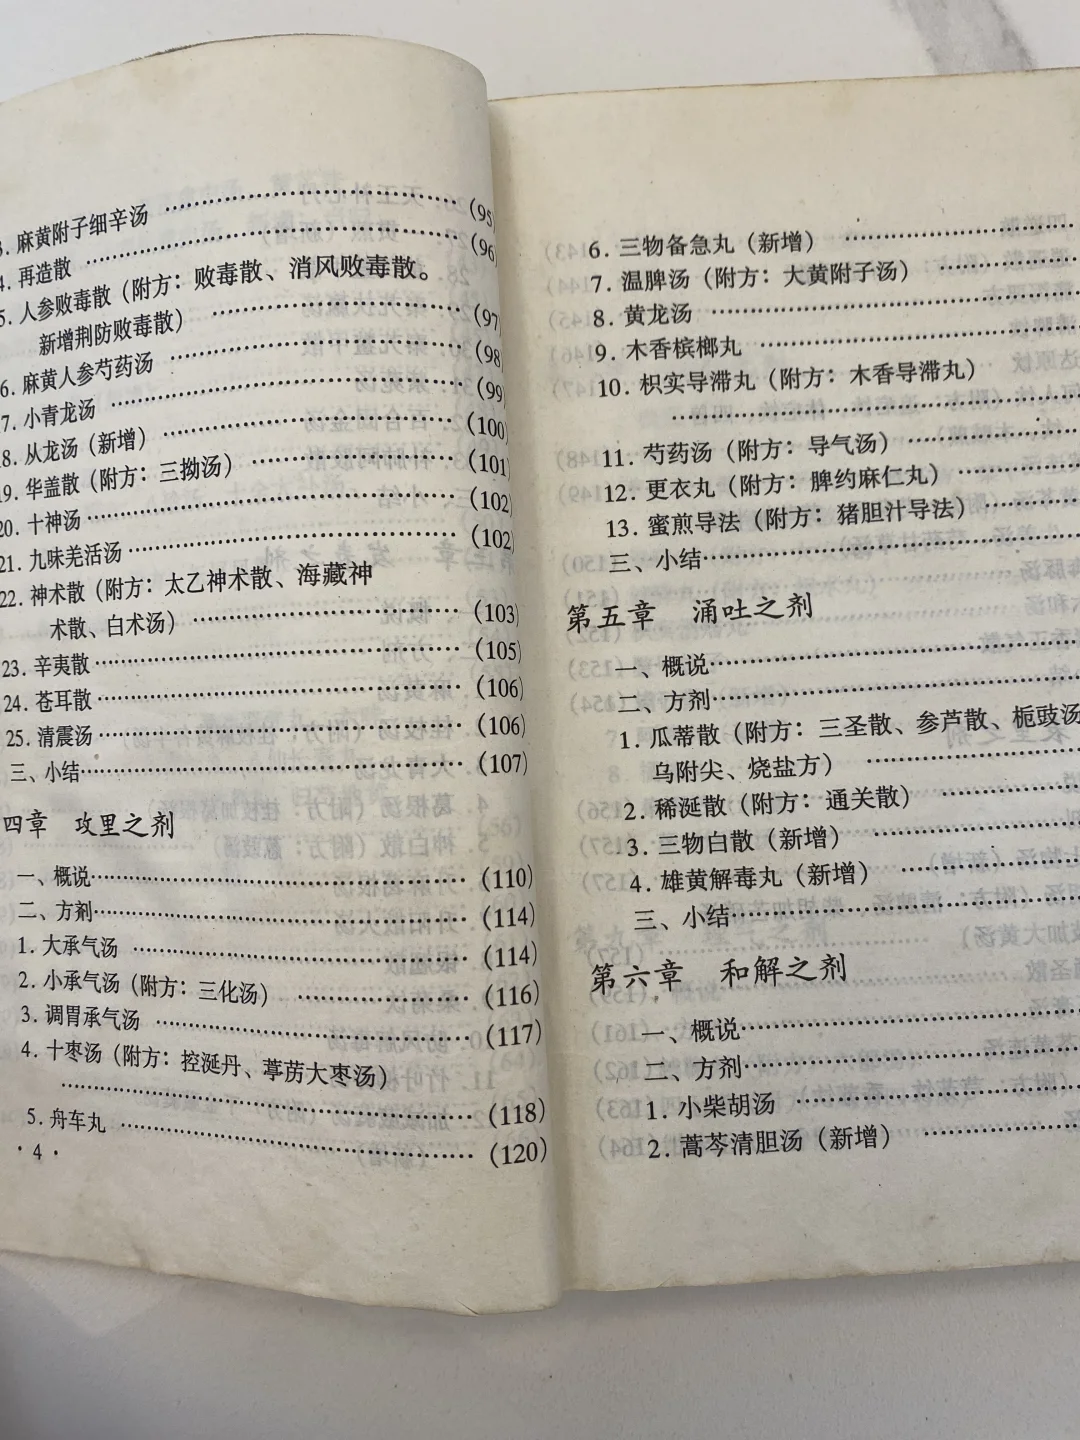 3. 麻黄附子细辛汤 ……………………(95)
4. 再造散 ……………………(96)
5. 人参败毒散（附方：败毒散、消风败毒散。
新增荆防败毒散） ……………………(97)
6. 麻黄人参芍药汤 ……………………(98)
17. 小青龙汤 ……………………(99)
18. 从龙汤（新增） ……………………(100)
19. 华盖散（附方：三拗汤） ……………………(101)
20. 十神汤 ……………………(102)
21. 九味羌活汤 ……………………(102)
22. 神术散（附方：太乙神术散、海藏神
术散、白术汤） ……………………(103)
23. 辛夷散 ……………………(105)
24. 苍耳散 ……………………(106)
25. 清震汤 ……………………(106)
三、小结 ……………………(107)
四章 攻里之剂
一、概说 ……………………(110)
二、方剂 ……………………(114)
1. 大承气汤 ……………………(114)
2. 小承气汤（附方：三化汤） ……………………(116)
3. 调胃承气汤 ……………………(117)
4. 十枣汤（附方：控涎丹、葶苈大枣汤）
……………………(118)
5. 舟车丸 ……………………(120)
· 4 ·
6. 三物备急丸（新增） ……………………
7. 温脾汤（附方：大黄附子汤） ……………………
8. 黄龙汤 ……………………
9. 木香槟榔丸 ……………………
10. 枳实导滞丸（附方：木香导滞丸）
……………………
11. 芍药汤（附方：导气汤） ……………………
12. 更衣丸（附方：脾约麻仁丸） ……………………
13. 蜜煎导法（附方：猪胆汁导法） ……………………
三、小结 ……………………
第五章 涌吐之剂
一、概说 ……………………
二、方剂 ……………………
1. 瓜蒂散（附方：三圣散、参芦散、栀豉汤
乌附尖、烧盐方） ……………………
2. 稀涎散（附方：通关散） ……………………
3. 三物白散（新增） ……………………
4. 雄黄解毒丸（新增） ……………………
三、小结 ……………………
第六章 和解之剂
一、概说 ……………………
二、方剂 ……………………
1. 小柴胡汤 ……………………
2. 蒿芩清胆汤（新增） ……………………